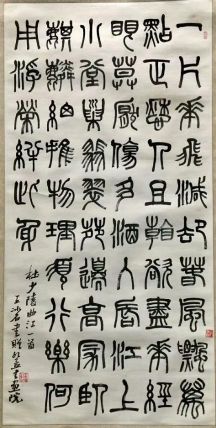 一片花飛減却春風飄萬
點正愁人且看欲盡花經
眼莫厭傷多酒入脣江上
小堂巢翡翠苑邊高冢臥
麒麟細推物理須行樂何
用浮榮絆此身
杜少陵曲江一首
書贈 畫院